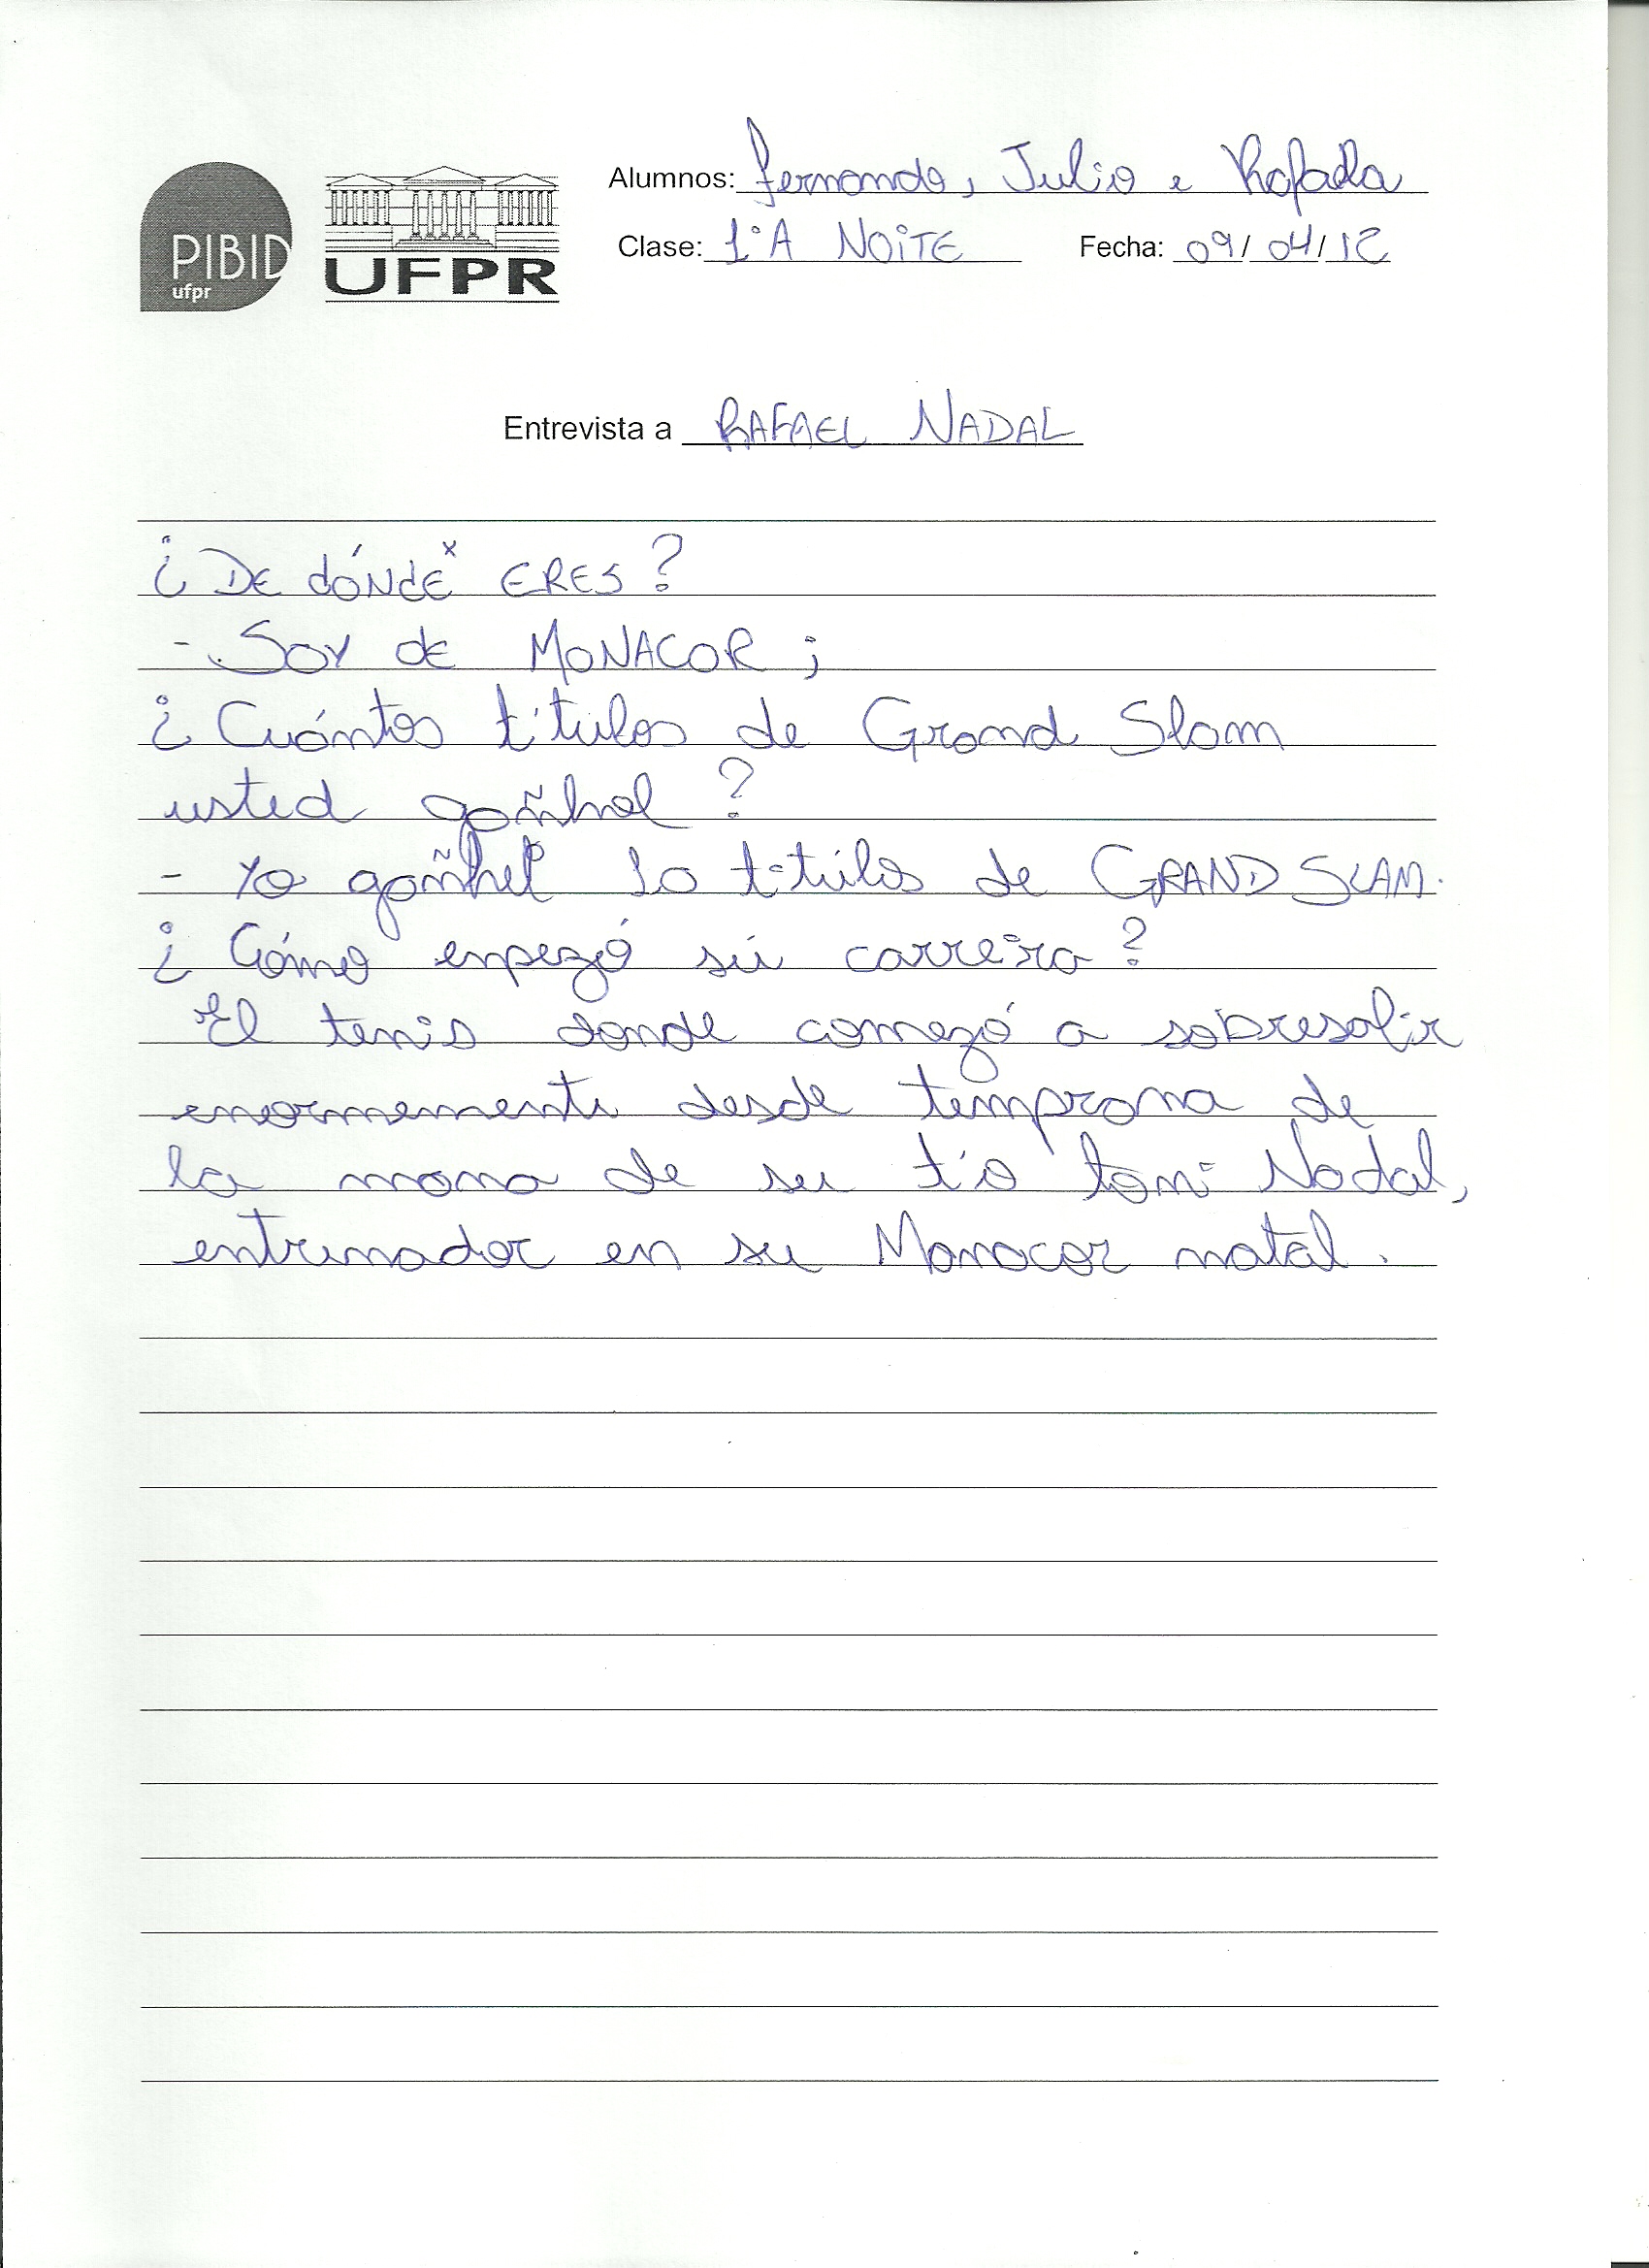 PIBID
ufpr
UFPR
Alumnos: Fernando, Julio e Rafaela
Clase: 1ºA NOITE Fecha: 09/04/12
Entrevista a RAFAEL NADAL
¿DE dóNdE ERES?
- SOY dE MONACOR;
¿Cuántos títulos de Grand Slam
usted
- Yo 10 titúlos de GRAND SLAM.
¿Cómo enpezó sú carreira?
El tenis donde comezó a sobresalir
enormemente desde temprana de
la mana de su tío toni Nadal,
entrenador en su Monacor natal.